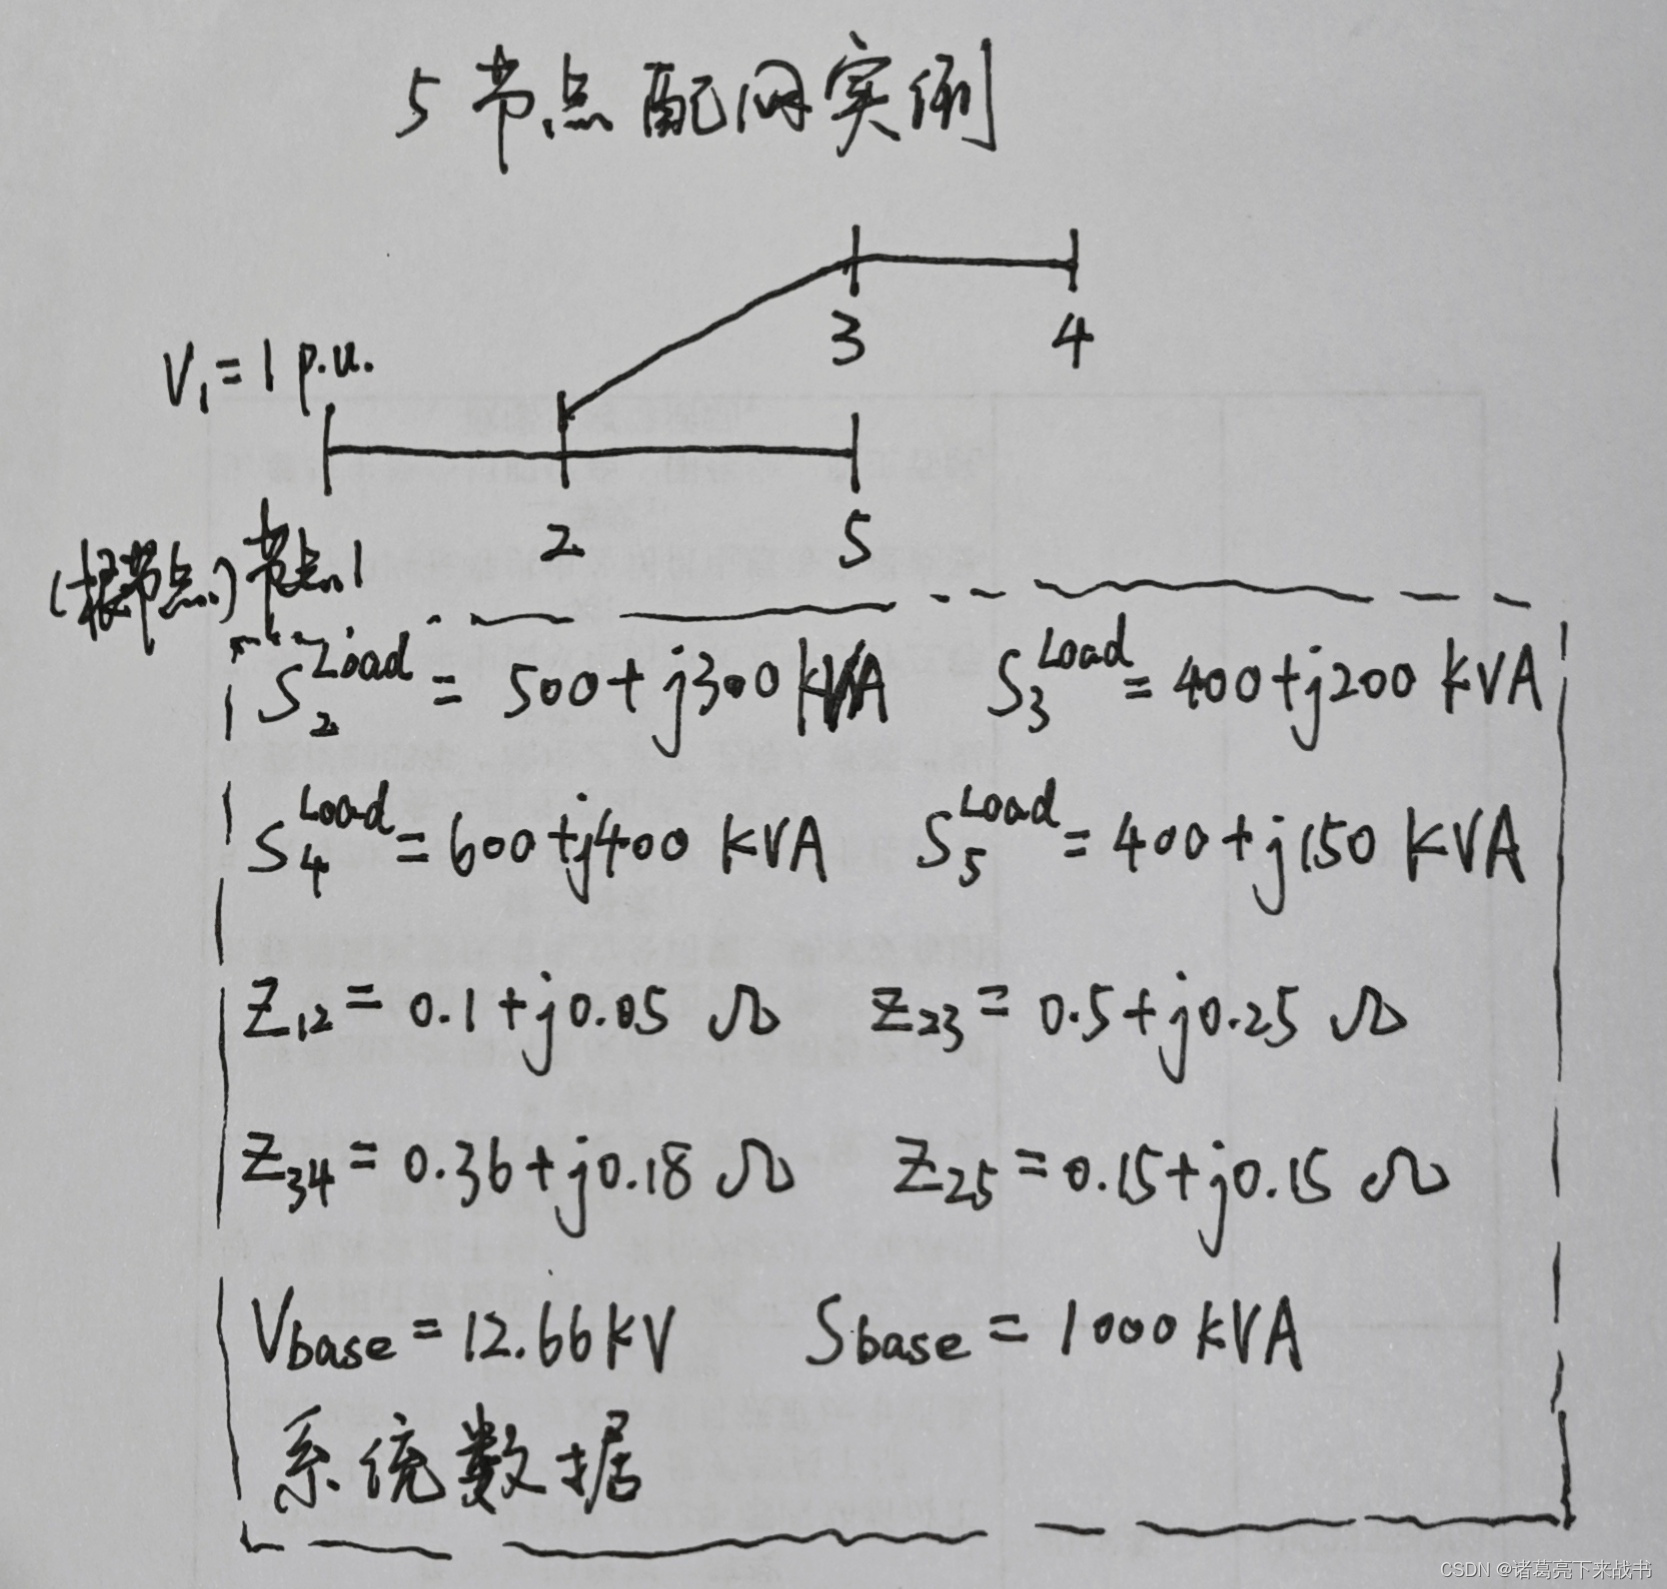 5节点配网实例
3
4
V₁=1 p.u.
2
5
(根节点) 节点1
S₂^Load = 500+j300 kVA S₃^Load = 400+j200 KVA
S₄^Load = 600+j400 KVA S₅^Load = 400+j150 KVA
Z₁₂ = 0.1+j0.05 Ω Z₂₃ = 0.5+j0.25 Ω
Z₃₄ = 0.36+j0.18 Ω Z₂₅ = 0.15+j0.15 Ω
Vbase = 12.66KV Sbase = 1000 KVA
系统数据
CSDN @诸葛亮下来战书